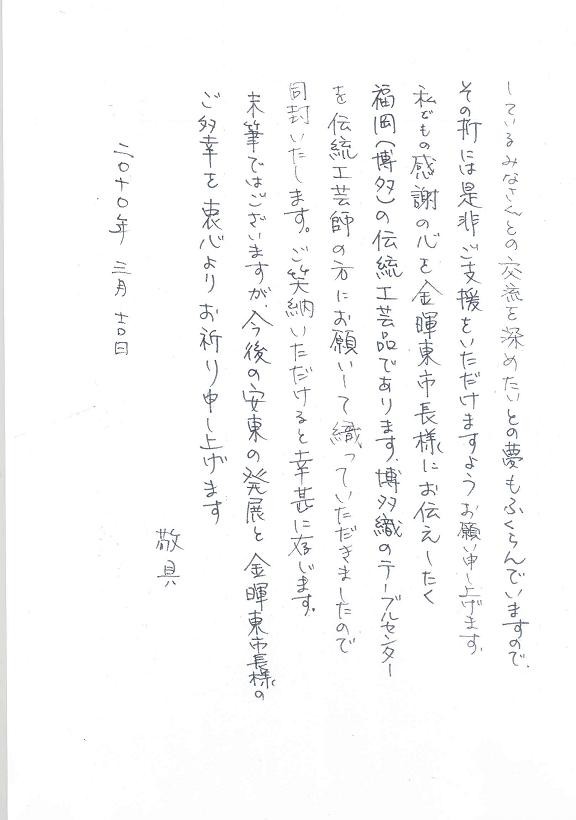 しているみなさんとの交流を深めたいとの夢もふくらんでいますので、
その折には是非ご支援をいただけますようお願い申し上げます。
私どもの感謝の心を金暉東市長様にお伝えしたく
福岡(博多)の伝統工芸品であります、博多織のテーブルセンター
を伝統工芸師の方にお願いして織っていただきましたので
同封いたします。ご笑納いただけると幸甚に存じます。
末筆ではございますが、今後の安東の発展と金暉東市長様の
ご多幸を衷心よりお祈り申し上げます
敬具
二〇十〇年 三月 吉日